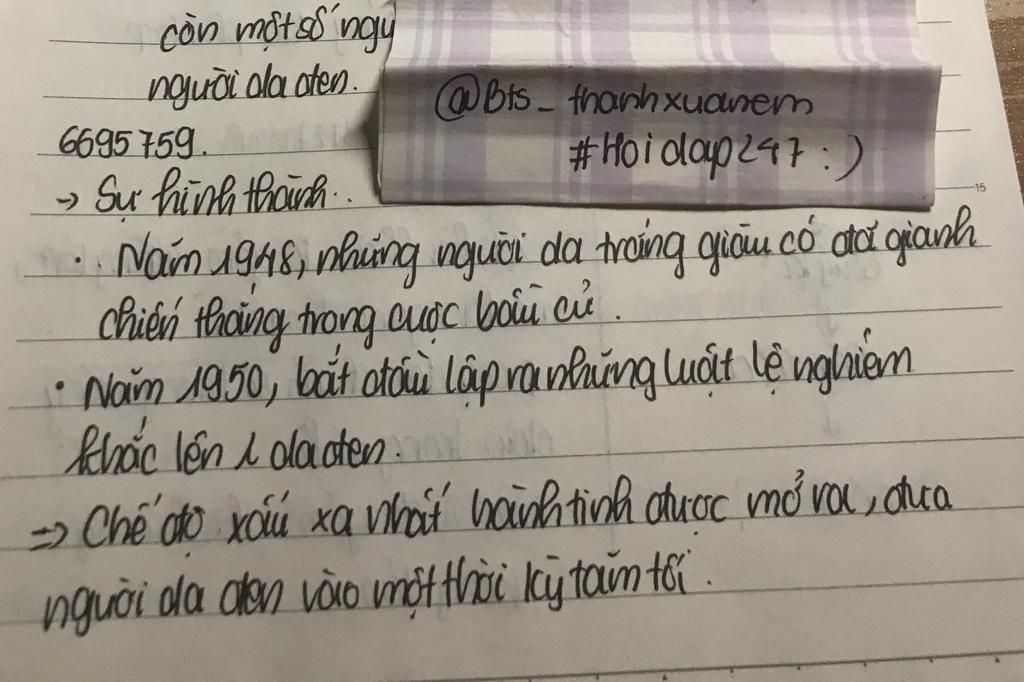 còn một số ngу
người da đen.
@Bts_thanhxuanem
#Hoidap247 :)
6695759.
→ Sự hình thành.
15
· Năm 1948, những người da trắng giàu có đã giành
chiến thắng trong cuộc bầu cử.
• Năm 1950, bắt đầu lập ra những luật lệ nghiêm
khắc lên da đen.
=> Chế độ xấu xa nhất hành tinh được mở ra, đưa
người da đen vào một thời kỳ tăm tối.